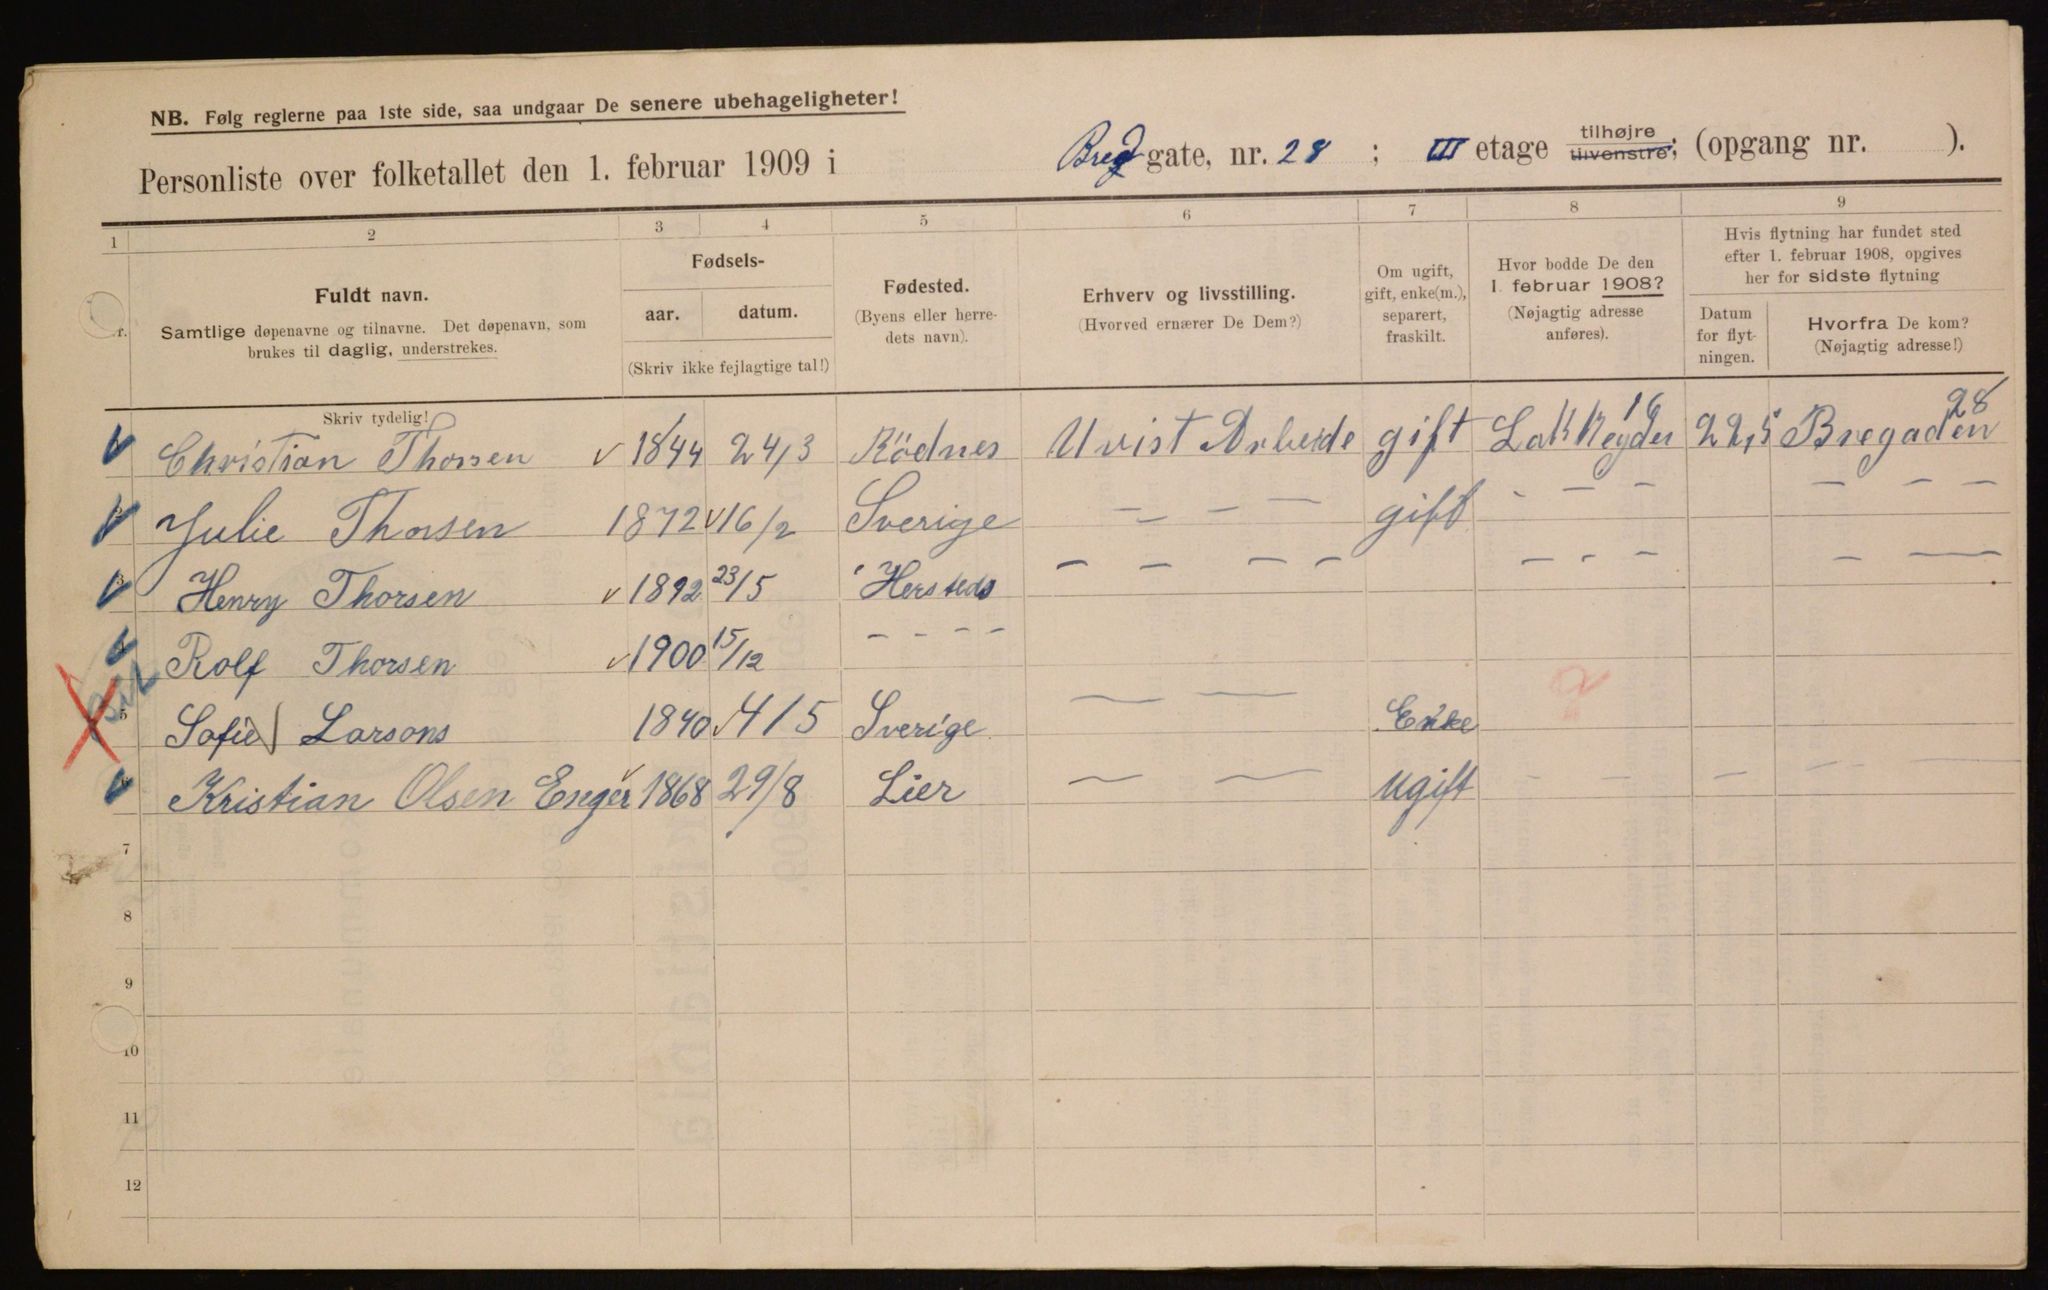 NB. Følg reglerne paa 1ste side, saa undgaar De senere ubehageligheter!
Personliste over folketallet den 1. februar 1909 i Bred gate, nr. 28 ; III etage tilhøjre tilvenstre; (opgang nr. ).
1 2 3 4 5 6 7 8 9
Fuldt navn.
Samtlige døpenavne og tilnavne. Det døpenavn, som
brukes til daglig, understrekes.
Skriv tydelig!
Fødsels-
aar. datum.
(Skriv ikke fejlagtige tal!)
Fødested.
(Byens eller herre-
dets navn).
Erhverv og livsstilling.
(Hvorved ernærer De Dem?)
Om ugift,
gift, enke(m.),
separert,
fraskilt.
Hvor bodde De den
1. februar 1908?
(Nøjagtig adresse
anføres).
Hvis flytning har fundet sted
efter 1. februar 1908, opgives
her for sidste flytning
Datum
for flyt-
ningen.
Hvorfra De kom?
(Nøjagtig adresse!)
Christian Thorsen 1844 24/3 Rödnes Uvist Arbeide gift 16 22/5 Bregaden 28
Julie Thorsen 1872 16/2 Sverige — — — gift - — — — — —
3 Henry Thorsen 1892 23/5 Hersteds — — — — — - — — —
Rolf Thorsen 1900 15/12 - - - -
5 Sofie Larsons 1840 4/5 Sverige — — Enke
Kristian Olsen Enger 1868 29/8 Lier — — ugift — — — — —
7
8
9
10
11
12